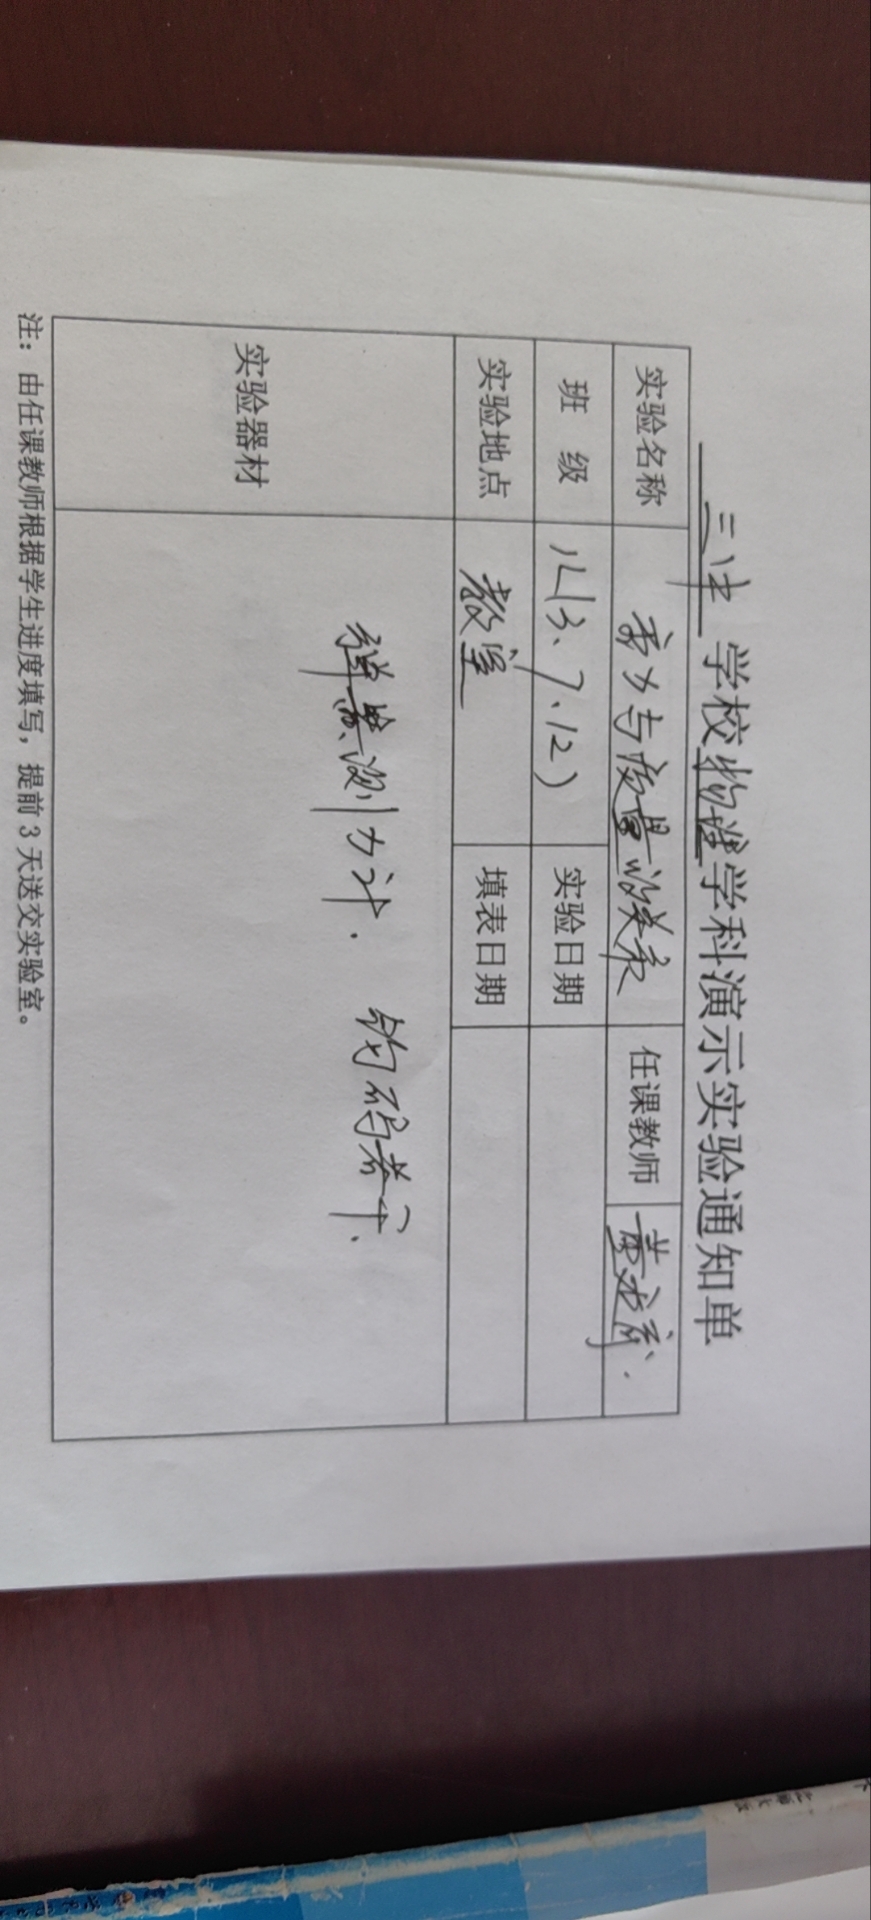 三中学校物理学科演示实验通知单
实验名称 重力与质量的关系 任课教师
班 级 八(3、7、12) 实验日期
实验地点 教室 填表日期
实验器材 弹簧测力计. 钩码若干.
注：由任课教师根据学生进度填写，提前3天送交实验室。